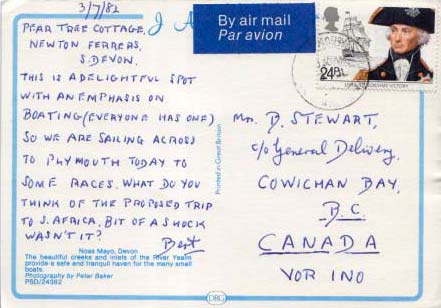 3/7/82
PEAR TREE COTTAGE,
NEWTON FERRERS,
S. DEVON.
THIS IS A DELIGHTFUL SPOT
WITH AN EMPHASIS ON
BOATING (EVERYONE HAS ONE)
SO WE ARE SAILING ACROSS
TO PLYMOUTH TODAY TO
SOME RACES. WHAT DO YOU
THINK OF THE PROPOSED TRIP
TO S. AFRICA, BIT OF A SHOCK
WASN'T IT?
Bert
Noss Mayo, Devon
The beautiful creeks and inlets of the River Yealm
provide a safe and tranquil haven for the many small
boats.
Photography by Peter Baker
PSD/24362
Printed in Great Britain
DRG
By air mail
Par avion
24p
VICTORY
Mr. D. STEWART,
c/o General Delivery,
COWICHAN BAY,
B.C.
CANADA
VOR INO